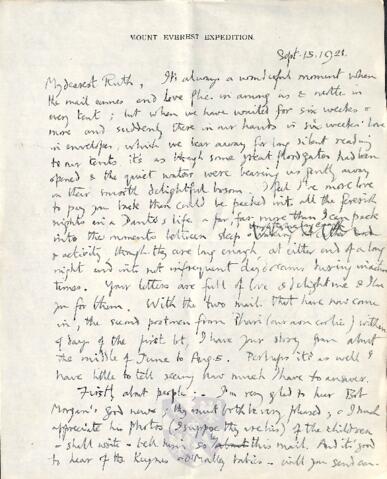 MOUNT EVEREST EXPEDITION.
Sept. 15. 1921.
My dearest Ruth, It's always a wonderful moment when
the mail comes and love flies in among us & nestles in
every tent; but when we have waited for six weeks &
more and suddenly there in our hands is six weeks' love
in envelopes, which we bear away for long silent reading
to our tents it's as though some great floodgates had been
opened & the quiet waters were bearing us gently away
on their smooth delightful bosom. I feel I've more love
to pay you back than could be packed into all the feverish
nights in a Dante's life & far far more than I can pack
into the moments between sleep
& activity though they are long enough, at either end of a long
night and with not infrequent day dreams during inactive
times. Your letters are full of love & delight me & I love
you for them. With the two mails that have now come
in, the second postman from Phari (our own coolie) within
a day of the first lot, I have your story from about
the middle of June to Aug. 5. Perhaps it's as well I
have little to tell seeing how much I have to answer.
First about people:- I'm very glad to hear Bob
Morgan's good news; they must both be very pleased; & I much
appreciate his photos (I suppose they're his) of the children
- shall write & tell him so this mail. And it's good
to hear of the Keynes & O'Malley babies - will you send con-